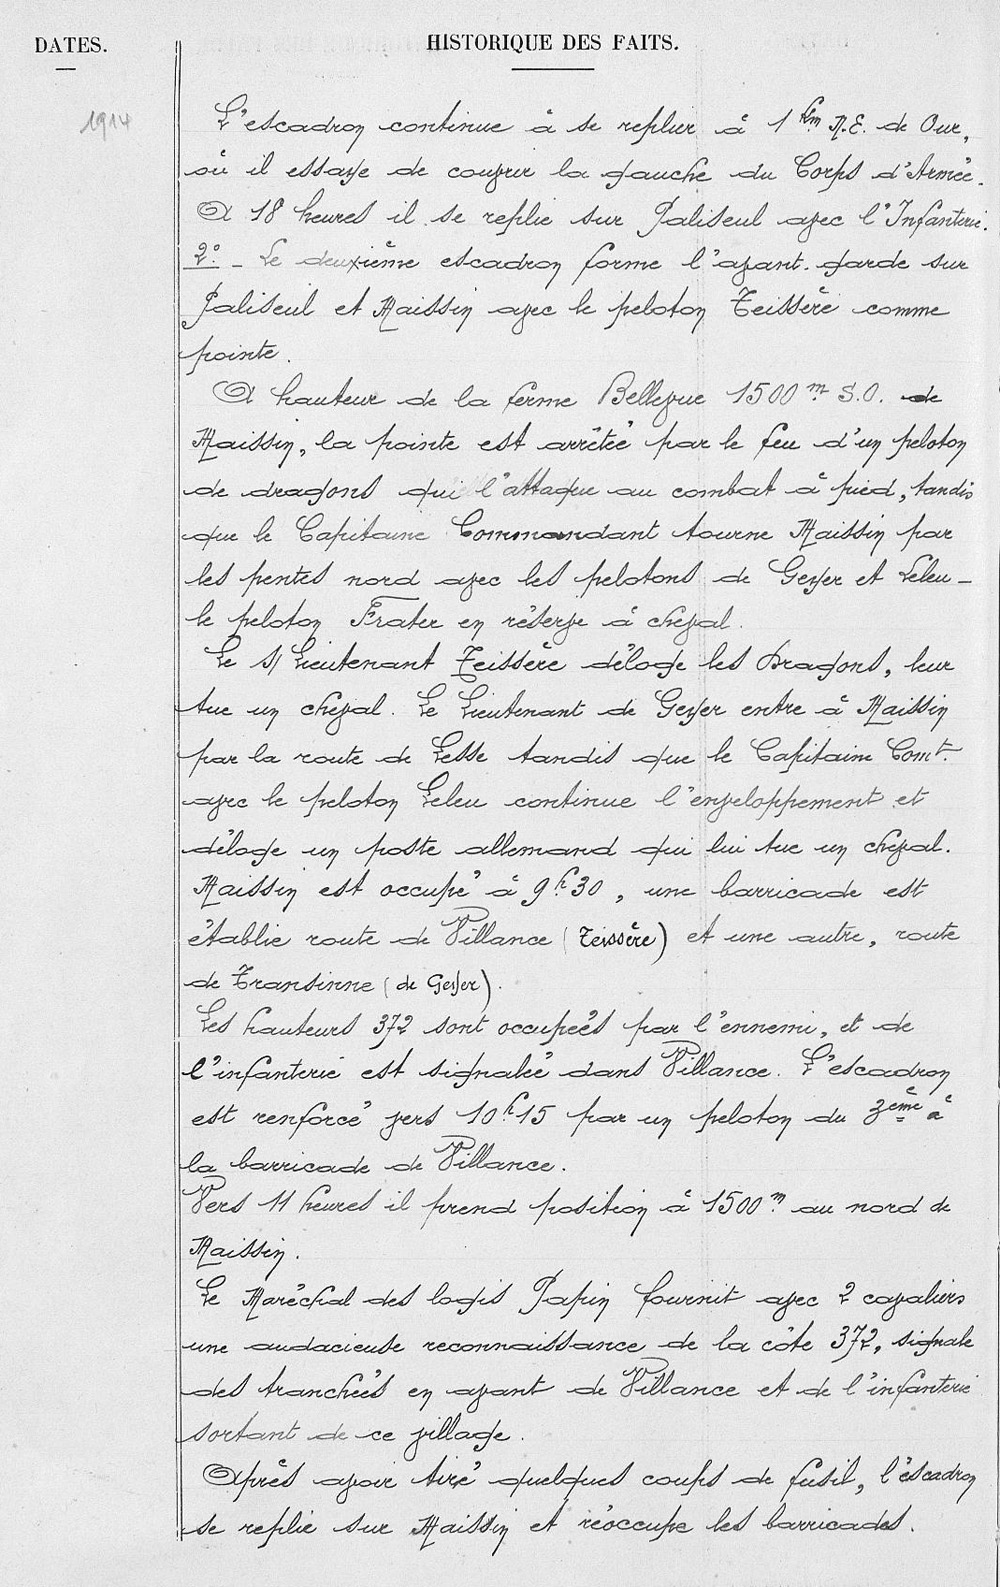 DATES.
HISTORIQUE DES FAITS.
1914
L'escadron continue à se replier à 1 km N.E. de Our,
où il essaye de couvrir la gauche du Corps d'Armée.
A 18 heures il se replie sur Paliseul avec l'Infanterie.
2° - Le deuxième escadron forme l'avant-garde sur
Paliseul et Maissin avec le peloton Teissère comme
pointe.
A hauteur de la ferme Bellevue 1500 m. S.O. de
Maissin, la pointe est arrêtée par le feu d'un peloton
de dragons qui l'attaque au combat à pied, tandis
que le Capitaine Commandant tourne Maissin par
les pentes nord avec les pelotons de Geyer et Leleu -
le peloton Frater en réserve à cheval.
Le S/Lieutenant Teissère déloge les Dragons, leur
tue un cheval. Le Lieutenant de Geyer entre à Maissin
par la route de Lesse tandis que le Capitaine Comt.
avec le peloton Leleu continue l'enveloppement et
déloge un poste allemand qui lui tue un cheval.
Maissin est occupé à 9h30, une barricade est
établie route de Villance (Teissère) et une autre, route
de Transinne (de Geyer).
Les hauteurs 372 sont occupées par l'ennemi, et de
l'infanterie est signalée dans Villance. L'escadron
est renforcé vers 10h15 par un peloton du 3ème à
la barricade de Villance.
Vers 11 heures il prend position à 1500 m. au nord de
Maissin.
Le Maréchal des logis Papin fournit avec 2 cavaliers
une audacieuse reconnaissance de la côte 372, signale
des tranchées en avant de Villance et de l'infanterie
sortant de ce village.
Après avoir tiré quelques coups de fusil, l'escadron
se replie sur Maissin et réoccupe les barricades.